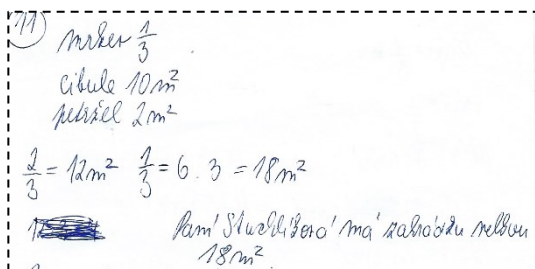 11
mrkev 1/3
cibule 10m²
petržel 2m²
2/3 = 12m² 1/3 = 6 . 3 = 18m²
Paní Stuchlíková má zahrádku velkou
18m²